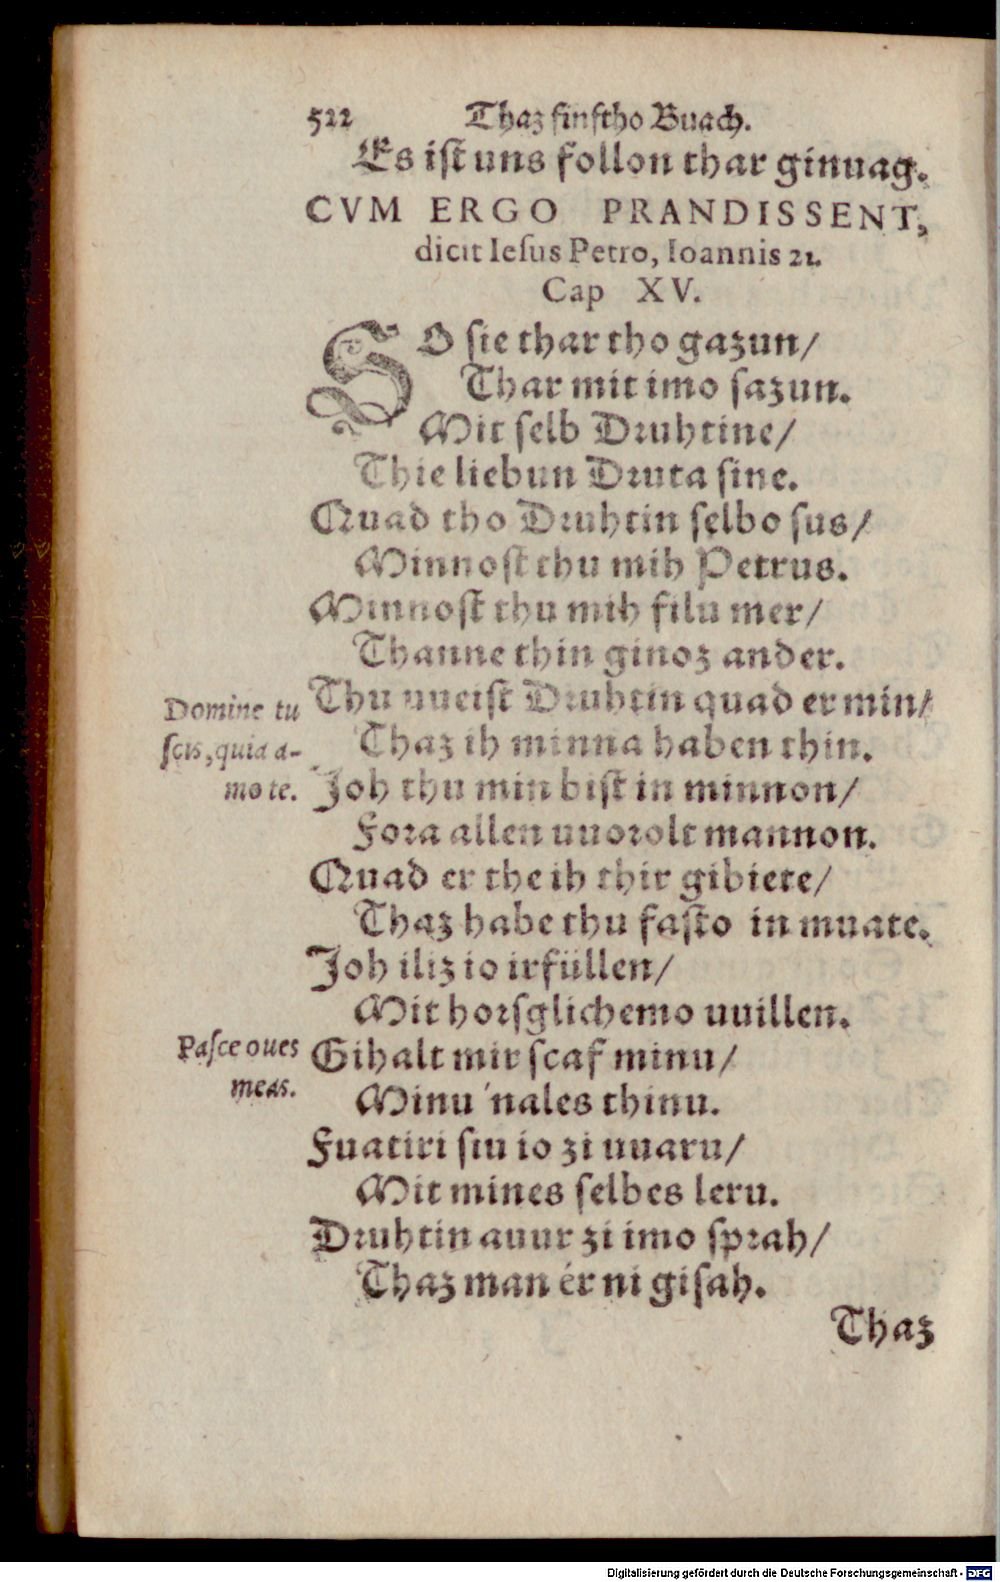 522 Thaz finftho Buach.
Es ist uns follon thar ginuag.
CVM ERGO PRANDISSENT,
dicit Iesus Petro, Ioannis 21.
Cap XV.
SO sie thar tho gazun/
Thar mit imo sazun.
Mit selb Druhtine/
Thie liebun Druta sine.
Quad tho Druhtin selbo sus/
Minnost thu mih Petrus.
Minnost thu mih filu mer/
Thanne thin ginoz ander.
Domine tu scis, quia amo te.
Thu uueist Druhtin quad er min/
Thaz ih minna haben thin.
Joh thu min bist in minnon/
Fora allen uuorolt mannon.
Quad er the ih thir gibiete/
Thaz habe thu fasto in muate.
Joh iliz io irfüllen/
Mit horsglichemo uuillen.
Pasce oues meas.
Gihalt mir scaf minu/
Minu 'nales thinu.
Fuatiri siu io zi uuaru/
Mit mines selbes leru.
Druhtin auur zi imo sprah/
Thaz man ér ni gisah.
Thaz
Digitalisierung gefördert durch die Deutsche Forschungsgemeinschaft - DFG